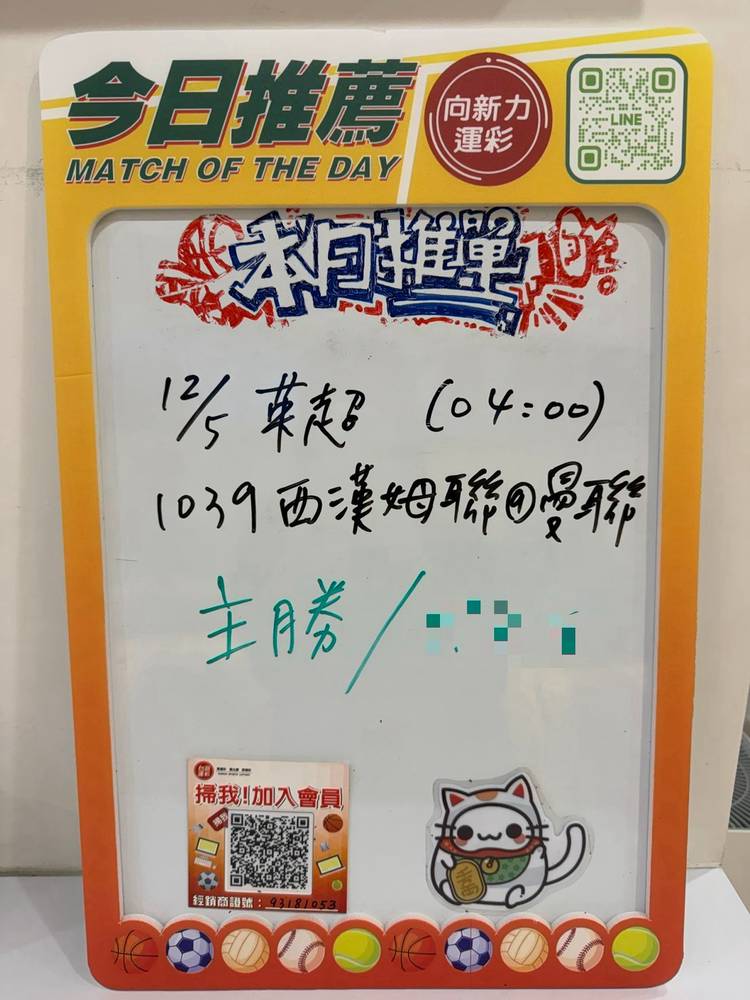 今日推薦
MATCH OF THE DAY
向新力
運彩
LINE
本月推單
12/5 英超 (04:00)
1039 西漢姆聯@曼聯
主勝/
掃我!加入會員
經銷商證號：93181053